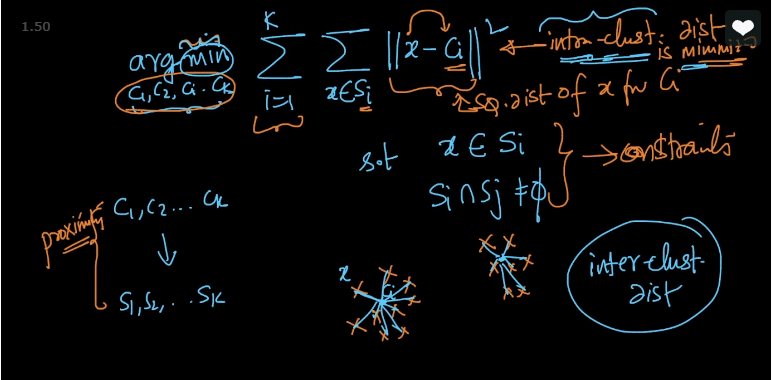 1.50
arg min Σ_{i=1}^{K} Σ_{x∈Si} ||x - Ci||² ← intra-clust. dist is minimiz
C1, C2, Ci .. CK
sq. dist of x fr Ci
s.t x ∈ Si
Si ∩ Sj ≠ ϕ
→ constraints
proximity
C1, C2 ... CK
↓
S1, S2, ... SK
x
Ci
inter-clust.
dist